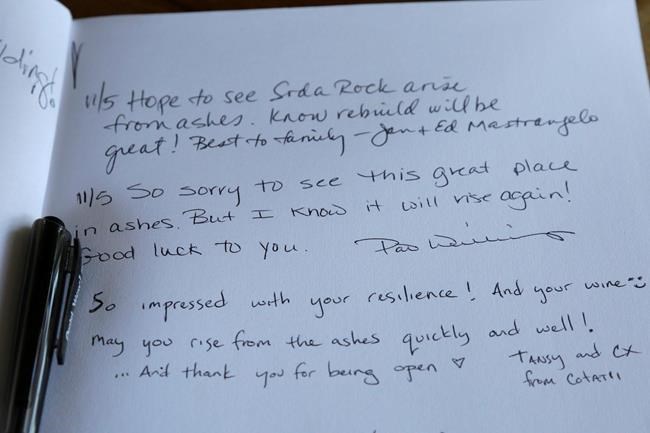 ilding!
11/5 Hope to see Soda Rock arise
from ashes. Know rebuild will be
great! Best to family – Jan + Ed Mastrangelo
11/5 So sorry to see this great place
in ashes. But I know it will rise again!
Good luck to you.
So impressed with your resilience! And your wine :)
may you rise from the ashes quickly and well!
... And thank you for being open ♡ TANSY and CX
from COTATI!